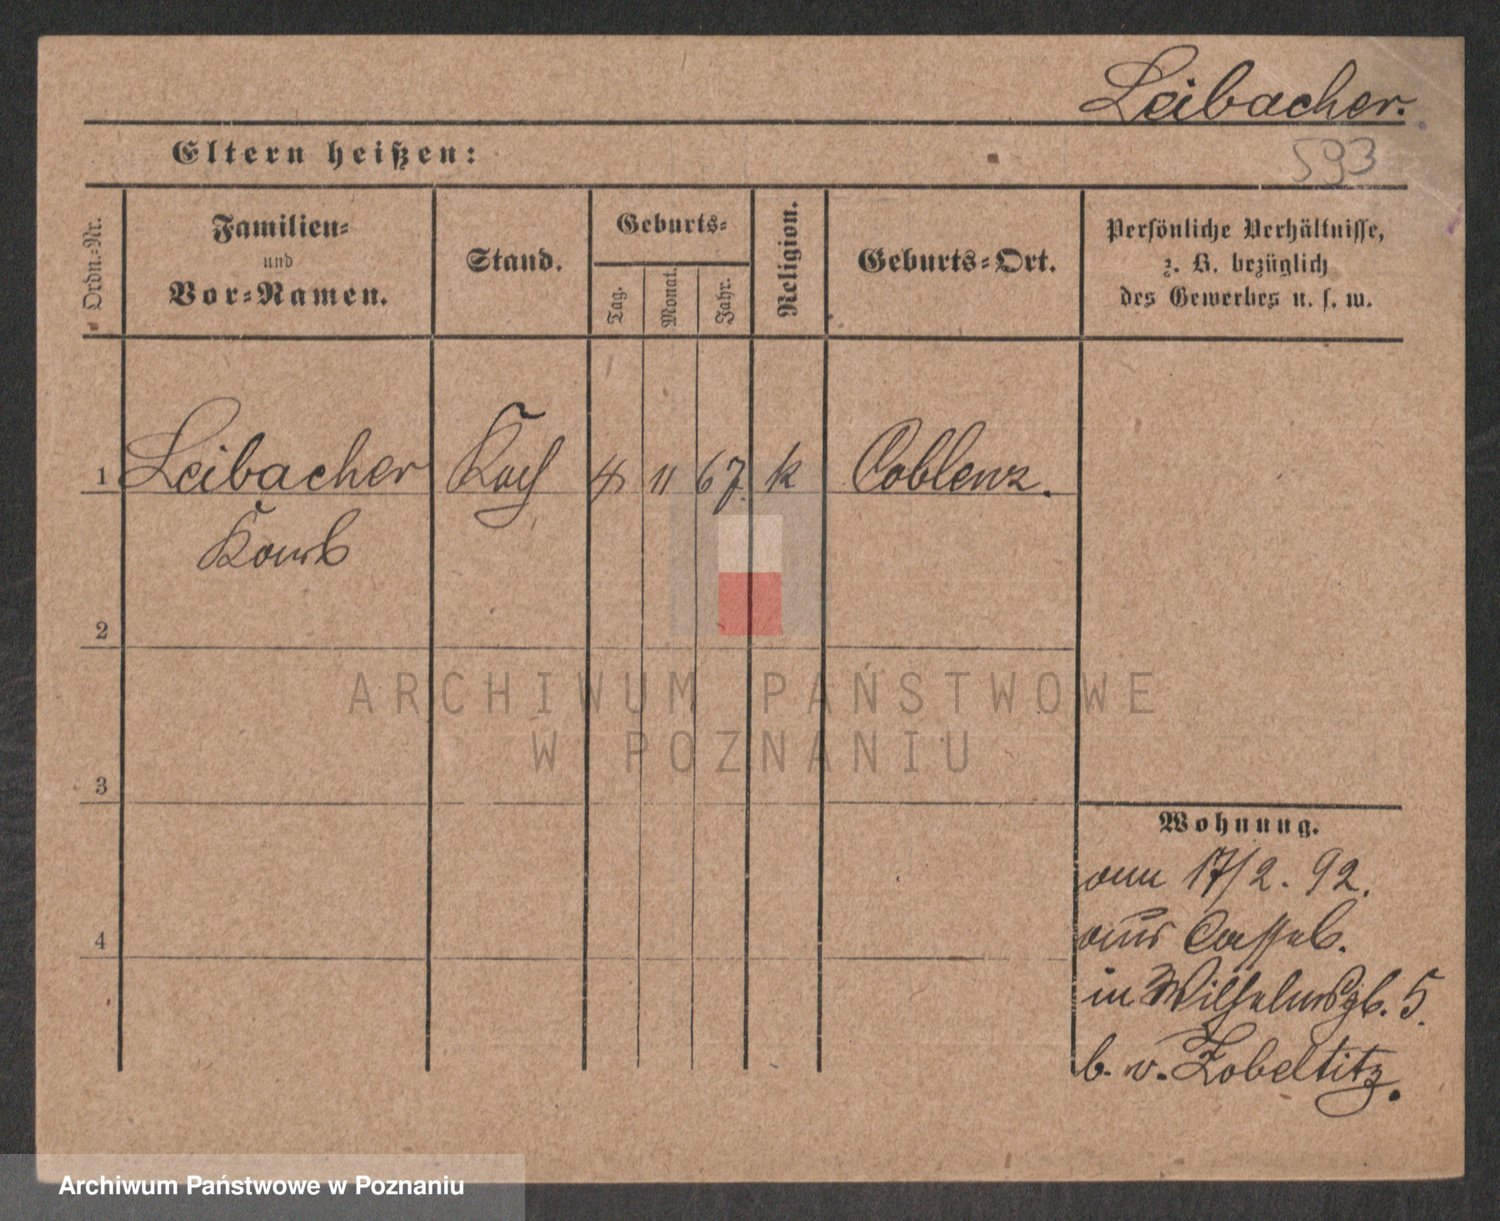 Leibacher.
593
Eltern heißen:
Ordn.-Nr.
Familien-
und
Vor-Namen.
Stand.
Geburts-
Tag.
Monat.
Jahr.
Religion.
Geburts-Ort.
Persönliche Verhältnisse,
z. B. bezüglich
des Gewerbes u. s. w.
1 Leibacher Koch 8 11 67. k Coblenz.
Karl
2
3
4
Wohnung.
am 17/2. 92.
aus Cassel.
in Wilhelmspl. 5.
b. v. Zobeltitz.
ARCHIWUM PAŃSTWOWE
W POZNANIU
Archiwum Państwowe w Poznaniu